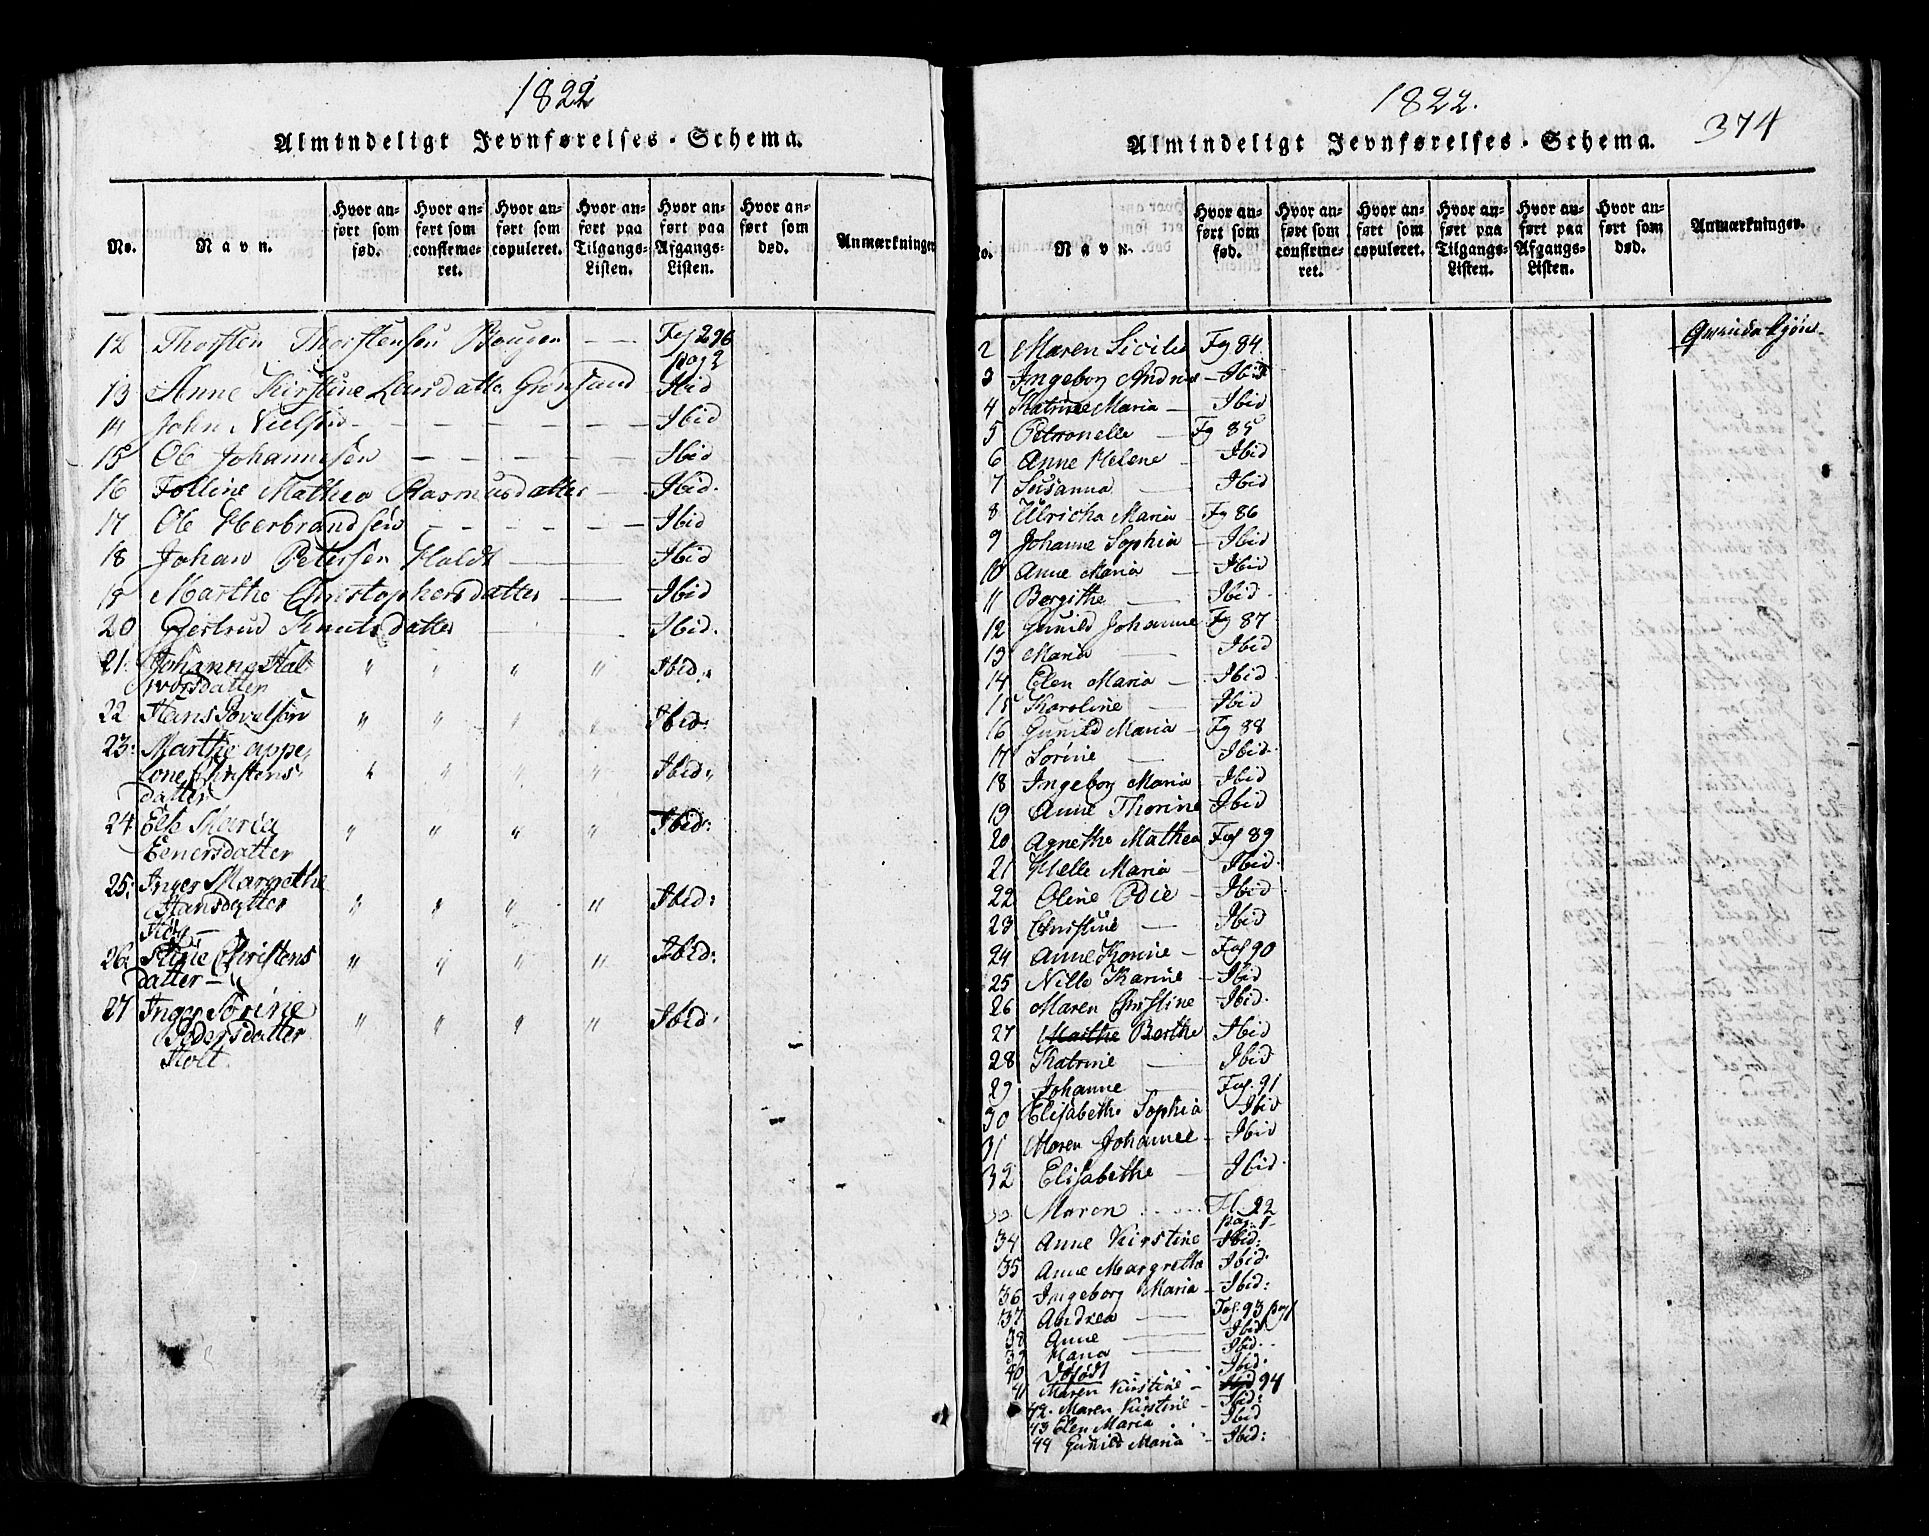 1822
Almindeligt Jevnførelses-Schema.
No.
Navn.
Hvor an-
ført som
fød.
Hvor an-
ført som
confirme-
ret.
Hvor an-
ført som
copuleret.
Hvor an-
ført paa
Tilgangs-
Listen.
Hvor an-
ført paa
Afgangs-
Listen.
Hvor an-
ført som
død.
Anmærkninger
12 Thorsten Thorstensen Bougen — — Fol 296
pag 2
13 Anne Kirstine Larsdatter Grønsund Ibid
14 John Nielsen — — — — — — Ibid
15 Ole Johannesen — — — — Ibid
16 Tolline Mathea Rasmusdatter — Ibid.
17 Ole Herbrandsen — — — — — — Ibid
18 Johan Petersen Holdt — — Ibid
19 Marthe Christophersdatter — Ibid
20 Giertrud Knutsdatter — — Ibid.
21. Johanne Hal-
vorsdatter " " " " Ibid.
22 Hans Povelsøn " " " " Ibid:
23: Marthe appe
lone Christens
datter " " " " Ibid
24 Else Maria
Eenersdatter " " " " Ibid:
25: Inger Margrethe
Hansdatter
" " " " Ibid:
26. Stine Christens
datter — " " " " Ibid:
27 Inger Sørine
Pedersdatter
Holt. " " " " Ibid.
1822.
374
Almindeligt Jevnførelses-Schema.
No.
Navn.
Hvor an-
ført som
fød.
Hvor an-
ført som
confirme-
ret.
Hvor an-
ført som
copuleret.
Hvor an-
ført paa
Tilgangs-
Listen.
Hvor an-
ført paa
Afgangs-
Listen.
Hvor an-
ført som
død.
Anmærkninger.
2 Maren Sicilie Fg 84. Qvindekjøn
3 Ingeborg Andrea — Ibid
4 Katrine Maria — Ibid
5 Petronelle — Fg 85
6 Anne Helene — Ibid
7 Susanna — Ibid
8 Ulricha Maria — Fg 86
9 Johanne Sophia — Ibid
10 Anne Maria — Ibid
11 Bergithe — Ibid
12 Gunild Johanne Fg 87
13 Maria — Ibid
14 Elen Maria — Ibid
15 Karoline — Ibid
16 Gunild Maria — Fg 88
17 Sørine — Ibid
18 Ingeborg Maria — Ibid
19 Anne Thorine Ibid
20 Agnethe Mathea Fol 89
21 Helle Maria — Ibid
22 Oline Odie — Ibid
23 Christine — Ibid
24 Anne Karine — Fol 90
25 Nille Karine — Ibid
26 Maren Christine Ibid
27 Marthe Berthe Ibid
28 Katrine — Ibid
29 Johanne — Fol. 91
30 Elisabethe Sophia Ibid
31 Maren Johanne — Ibid
32 Elisabethe — Ibid
Maren Fl. 92
pag. 1
34 Anne Kirstine Ibid:
35 Anne Margrethe Ibid
36 Ingeborg Maria — Ibid:
37 Andrea — Fol. 93 pag 1
38 Anne — Ibid
39 Maria — Ibid.
40 Døfødt Ibid.
41 Maren Kirstine — 94
42. Maren Kirstine — Ibid:
43 Elen Maria Ibid
44 Gunild Maria — Ibid: